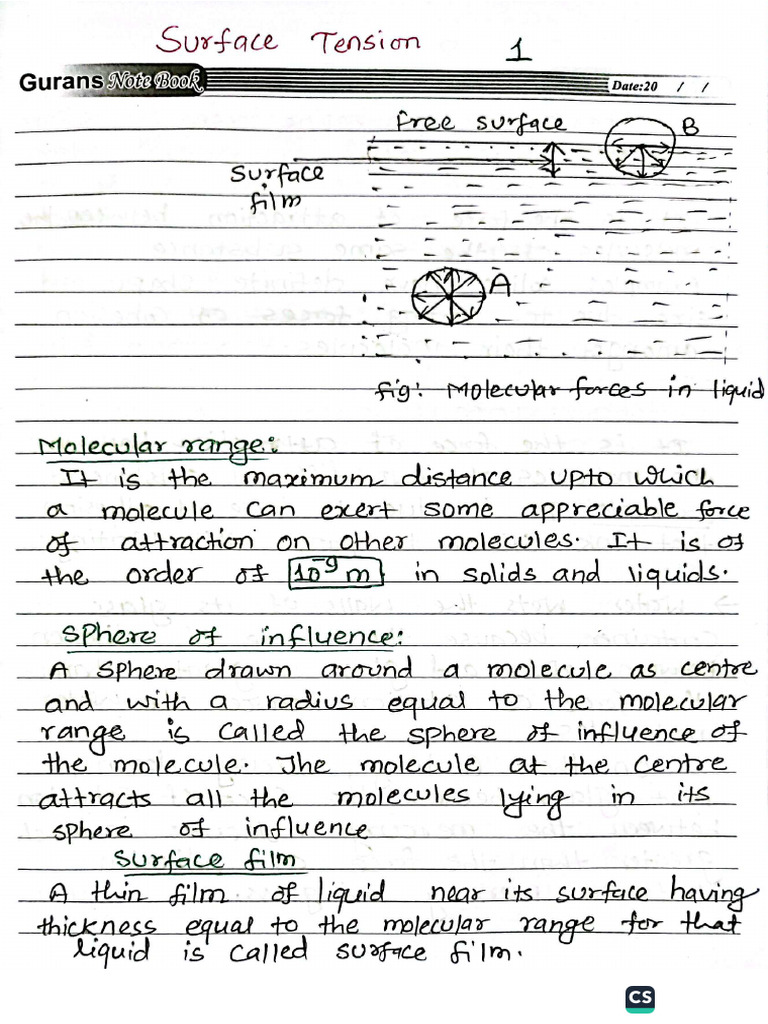 Surface Tension 1
Gurans Note Book Date:20 / /
Free surface B
Surface
film
A
fig: Molecular forces in liquid
Molecular range:
It is the maximum distance upto which
a molecule can exert some appreciable force
of attraction on other molecules. It is of
the order of 10⁻⁹ m in solids and liquids.
Sphere of influence:
A sphere drawn around a molecule as centre
and with a radius equal to the molecular
range is called the sphere of influence of
the molecule. The molecule at the centre
attracts all the molecules lying in its
sphere of influence
Surface film
A thin film of liquid near its surface having
thickness equal to the molecular range for that
liquid is called surface film.
CS